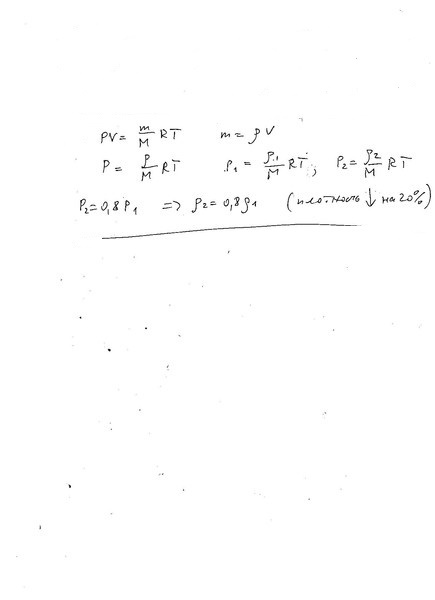 PV = m/M RT m = ρV
P = ρ/M RT P₁ = ρ₁/M RT; P₂ = ρ₂/M RT
P₂ = 0,8 P₁ => ρ₂ = 0,8 ρ₁ (плотность ↓ на 20%)